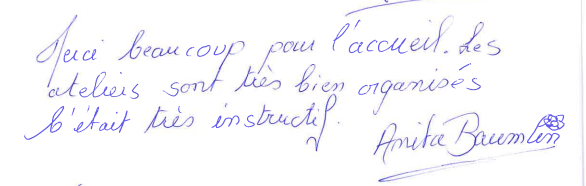 Merci beaucoup pour l'accueil. Les
ateliers sont très bien organisés
C'était très instructif.
Anita Baumlin